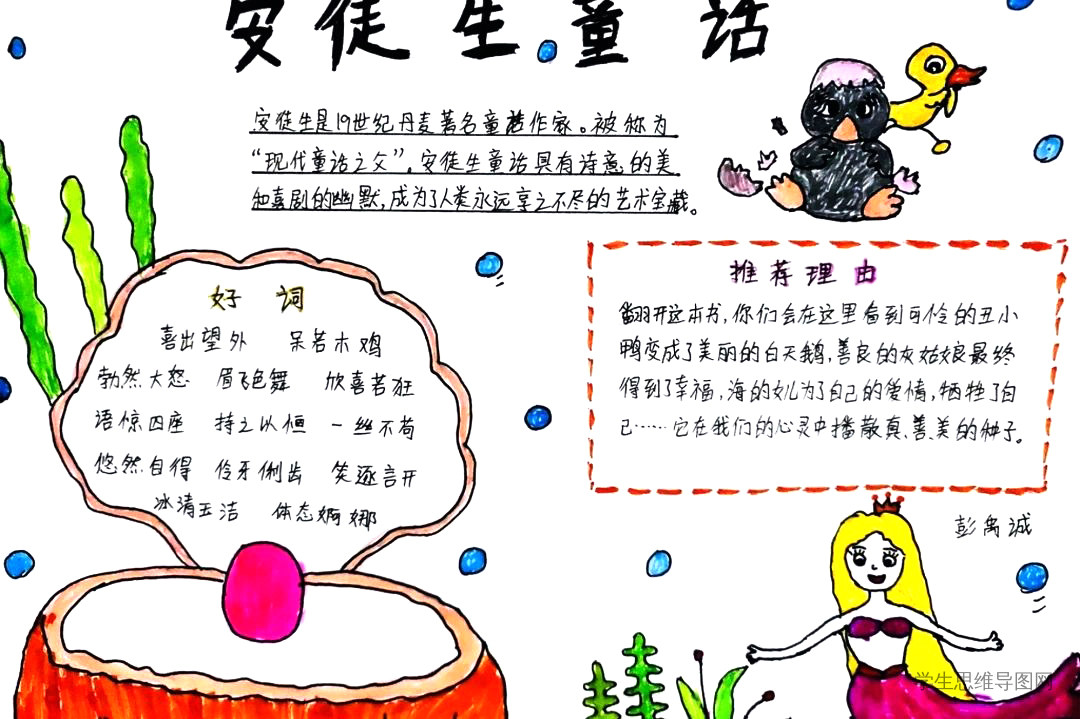 安徒生童话
安徒生是19世纪丹麦著名童话作家。被称为
“现代童话之父”。安徒生童话具有诗意的美
和喜剧的幽默,成为了人类永远享之不尽的艺术宝藏。
好词
喜出望外 呆若木鸡
勃然大怒 眉飞色舞 欣喜若狂
语惊四座 持之以恒 一丝不苟
悠然自得 伶牙俐齿 笑逐言开
冰清玉洁 体态婀娜
推荐理由
翻开这本书,你们会在这里看到可怜的丑小
鸭变成了美丽的白天鹅,善良的灰姑娘最终
得到了幸福,海的女儿为了自己的爱情,牺牲了自
己……它在我们的心灵中播散真、善、美的种子。
彭禹诚
学生思维导图网